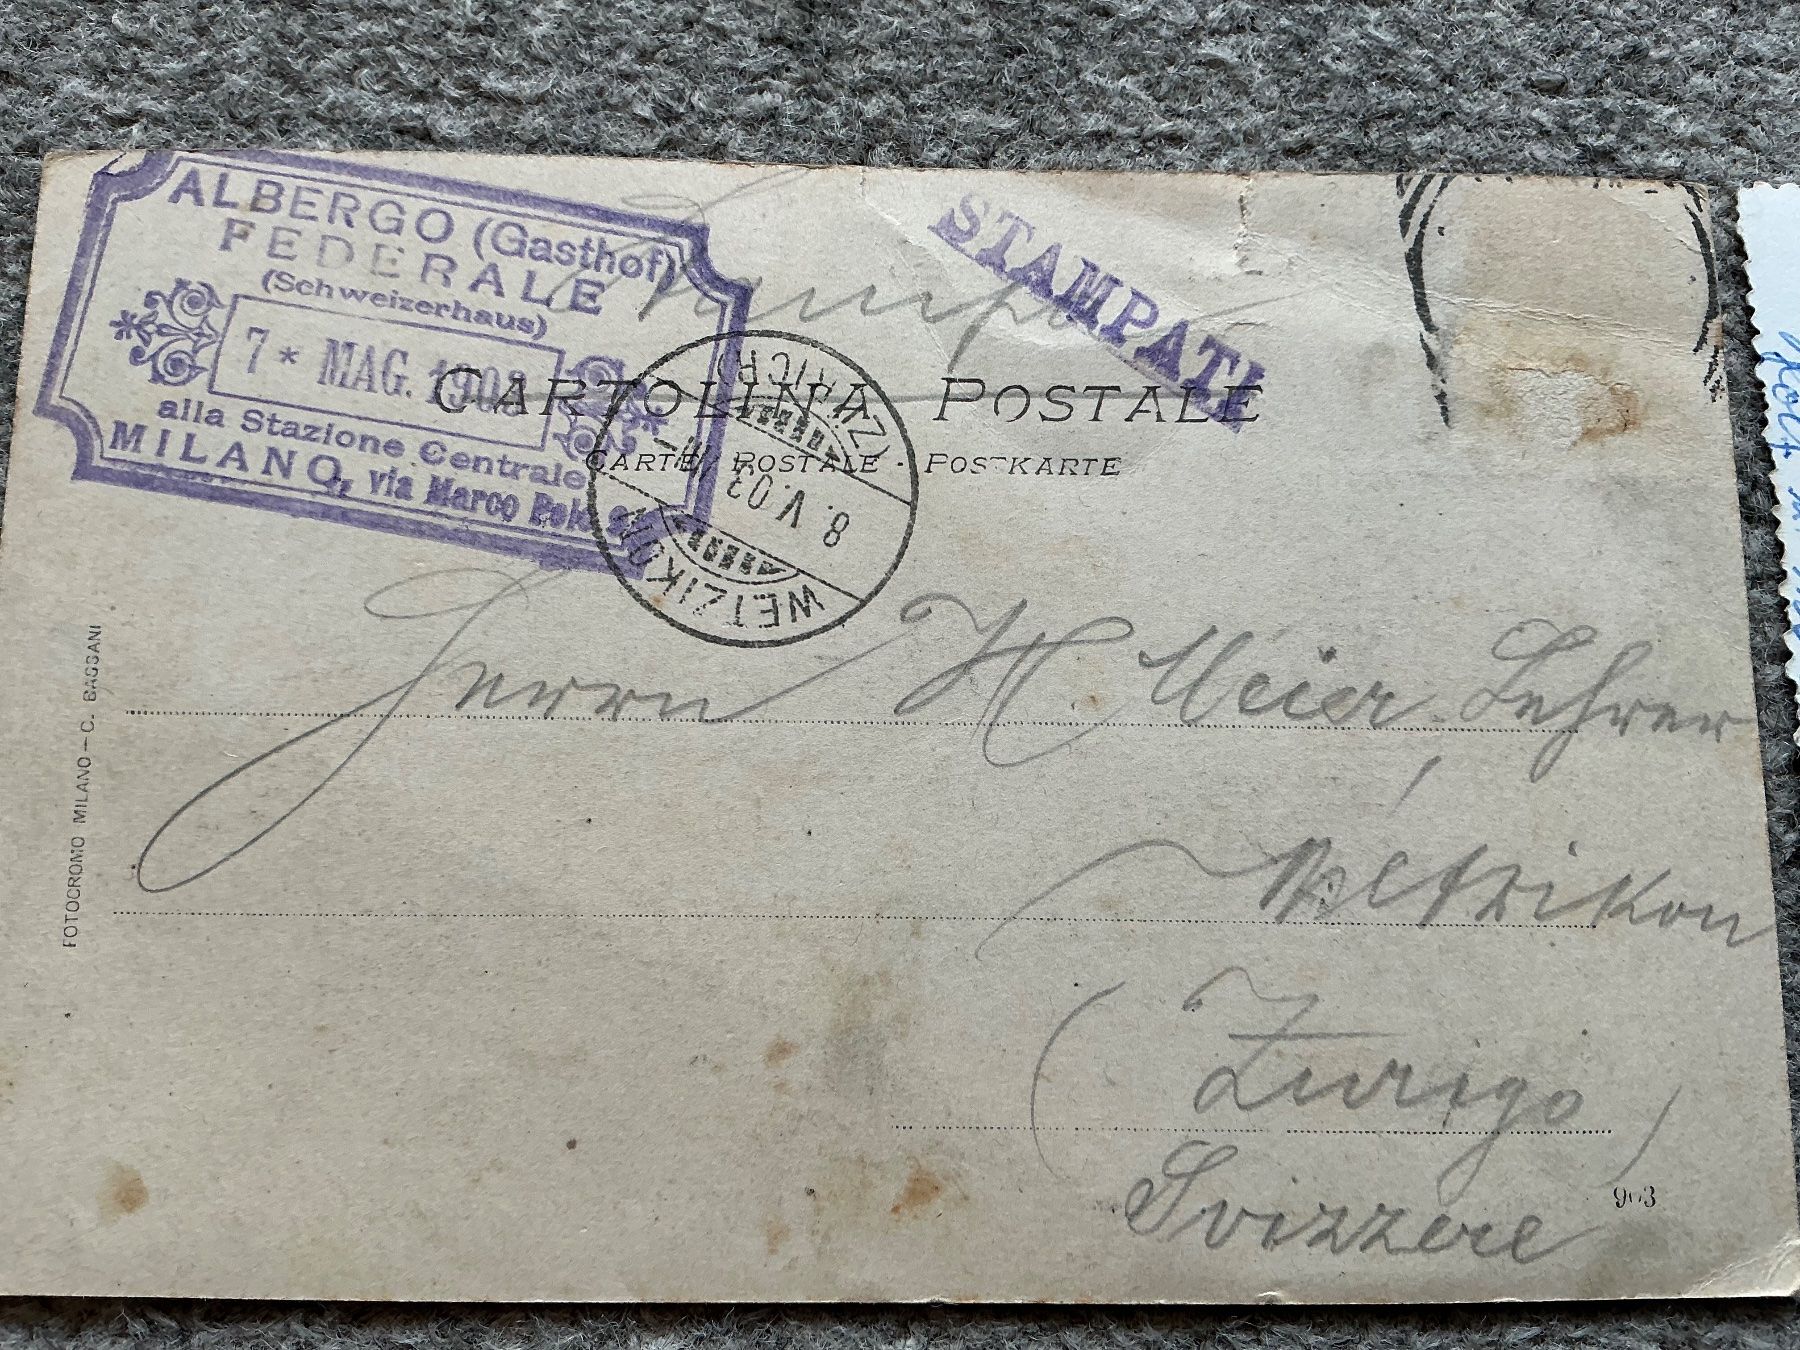 ALBERGO (Gasthof)
FEDERALE
(Schweizerhaus)
7 * MAG. 1903
alla Stazione Centrale
MILANO, via Marco Polo
Stampa
STAMPATI
CARTOLINA POSTALE
CARTE POSTALE - POSTKARTE
WETZIKON
8. V. 03
(ZÜRICH)
Herrn H. Meier Lehrer
Zurigo
Svizzere
903
FOTOCROMO MILANO - C. BASSANI